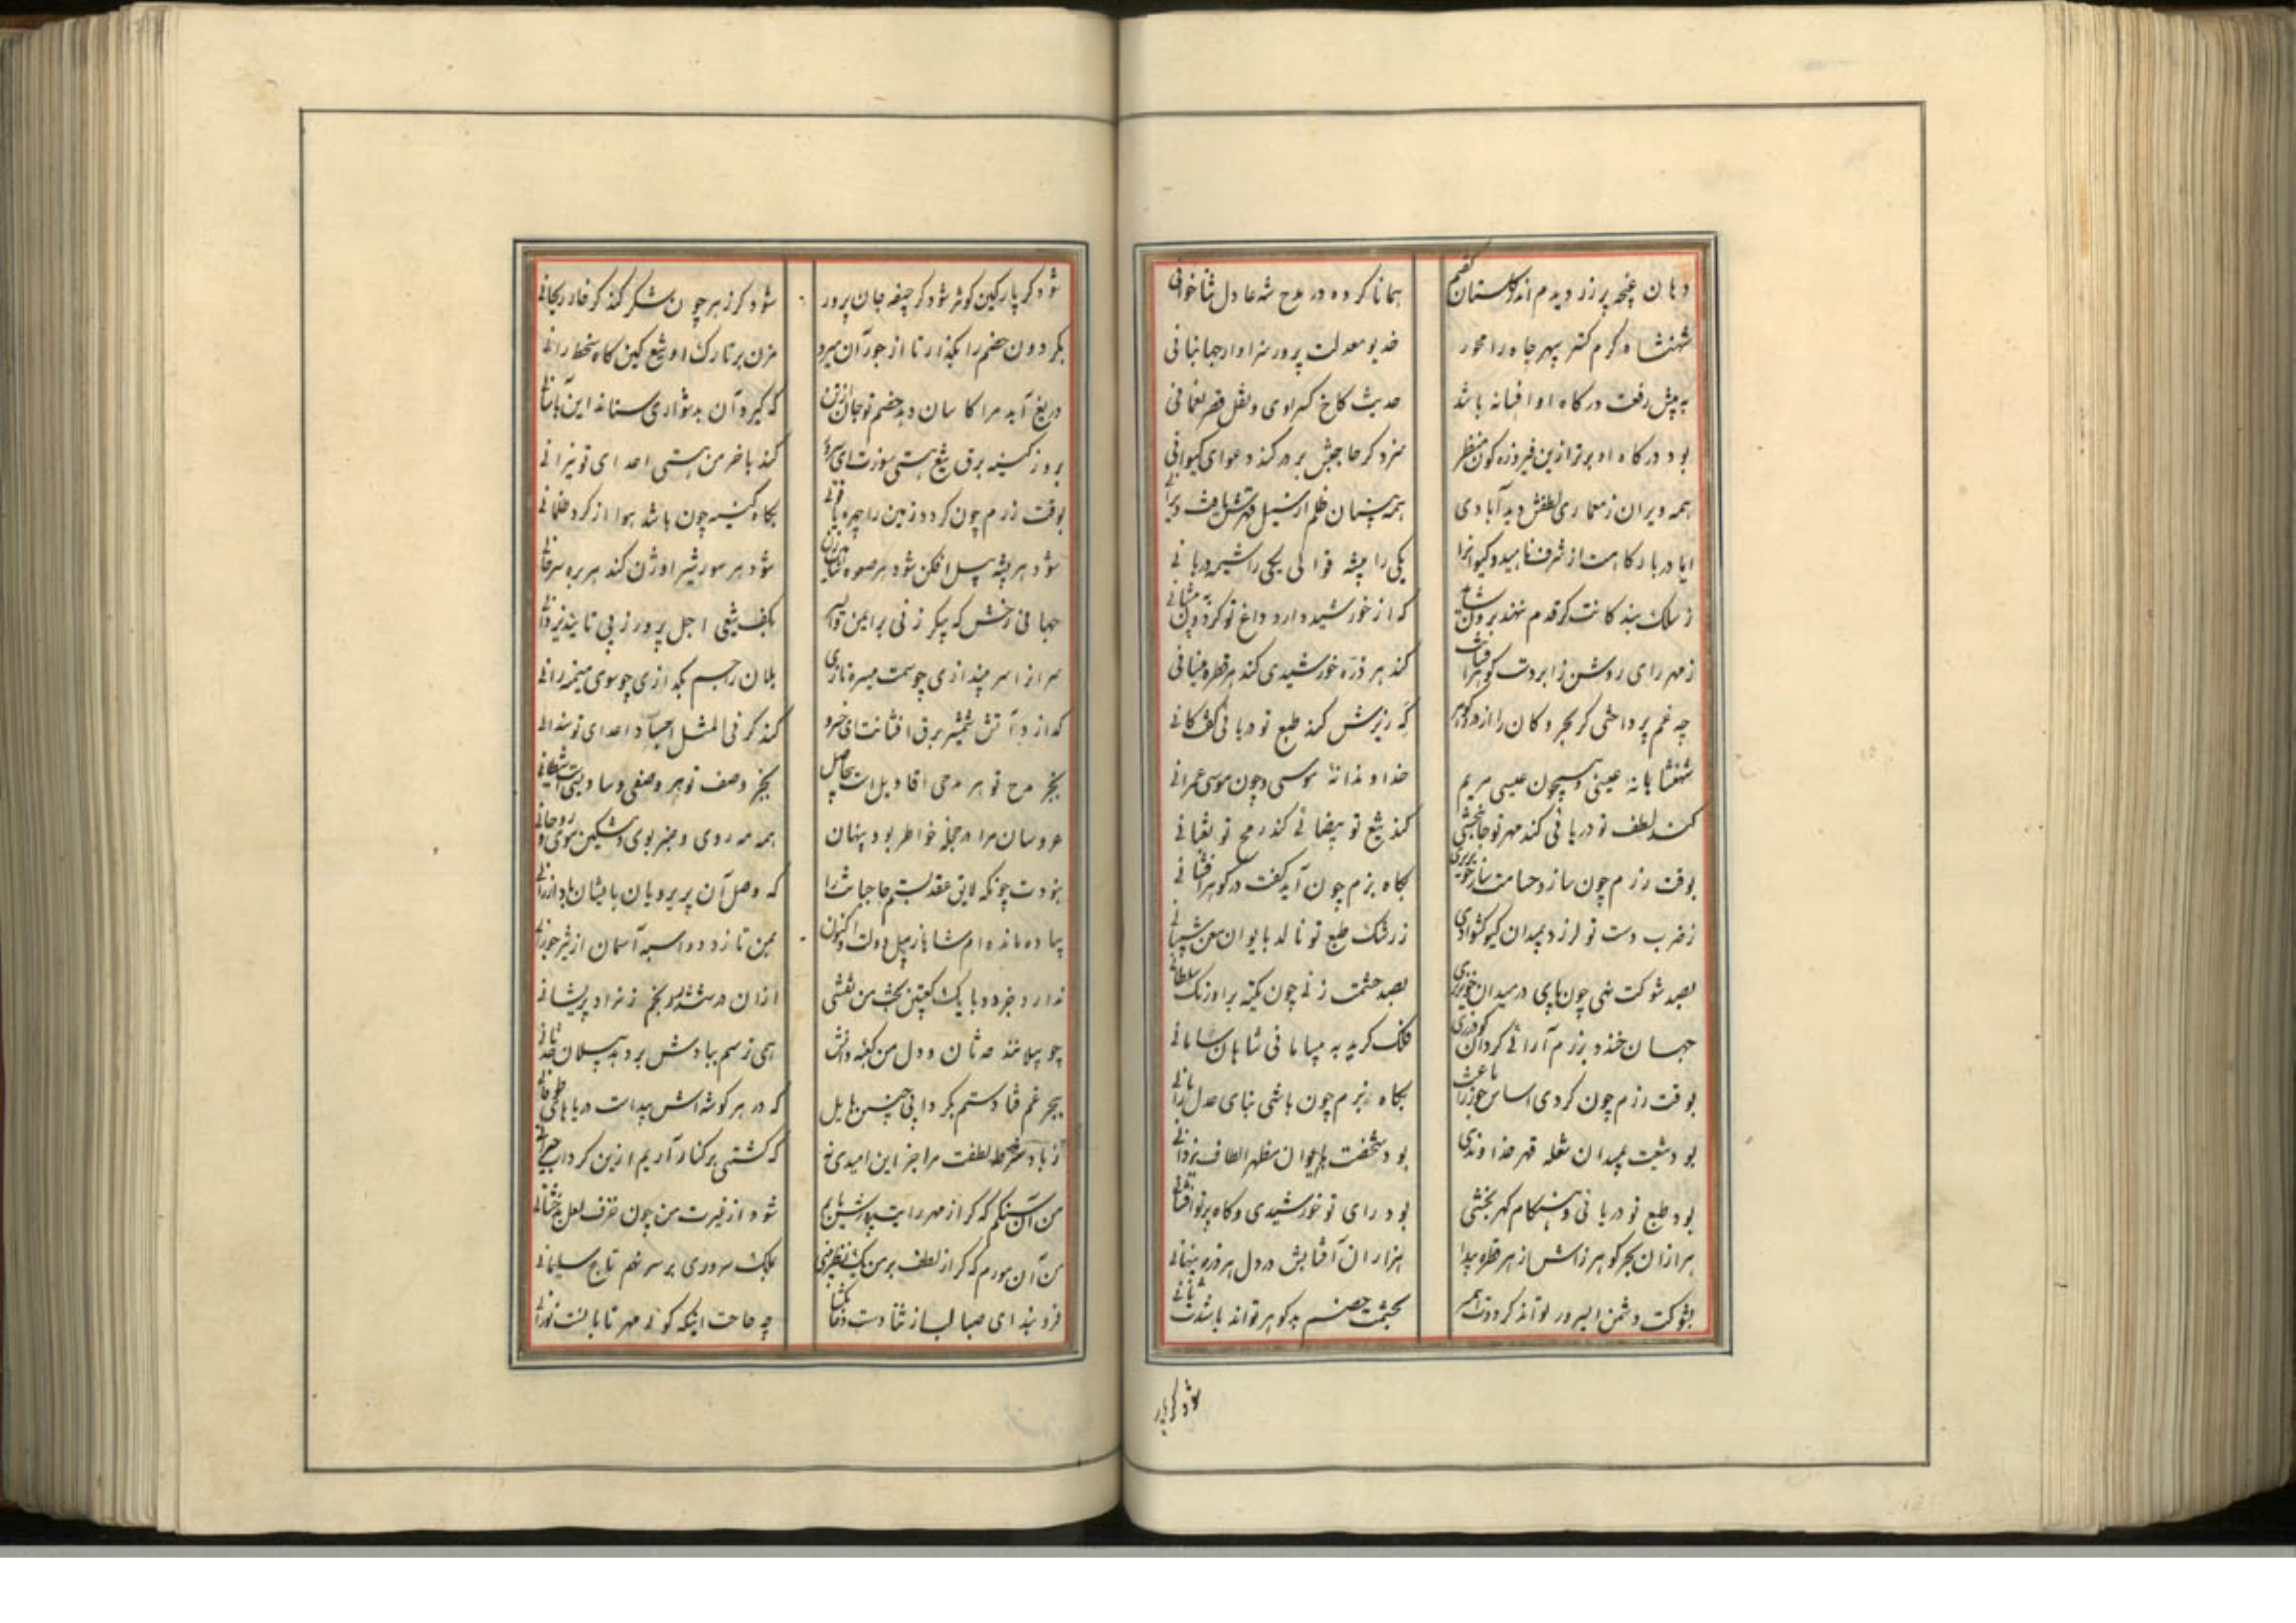 دهان غنچه پر زر دیدم اندر گلستان گفتم
همانا کرده در مدح شه عادل ثناخوانی
شهنشاه کرم کستر سپهر جاه را محور
خدیو معدلت پرور سزاوار جهانبانی
به پیش رفعت درکاه او افسانه باشد
حدیث کاخ کسراوی و نقل قصر نعمانی
بود درکاه او برتر ازین فیروزه کون منظر
سزد کر حاجبش بر در کند دعوای کیوانی
همه ویران ز معماری لطفش دید آبادی
همه بنیان ظلم از سیل قهرش یافت ویرانی
ایا دربارکاهت از شرف ناهید و کیوانرا
یکی را پیشه قوالی یکی را شیمه دربانی
ز سلک بندکانت کر قدم ننهد برون شاید
که از خورشید دارد داغ تو کردون به پیشانی
ز مهر رای روشن ز ابر دست کوهر افشانت
کند هر ذره خورشیدی کند هر قطره عمانی
چه غم پرداختی کر بحر و کان را از در و کوهر
که ریزش کند طبع تو دریائی کفت کانی
شهنشاهانه عیسی و همچون عیسی مریم
خداوندانه موسی و چون موسی عمرانی
کند لطف تو دریائی کند مهر تو جانبخشی
کند تیغ تو بیضائی کند رمح تو ثعبانی
بوقت رزم چون سازد حسامت ساز خونریزی
بکاه بزم چون آید کفت در کوهر افشانی
ز ضرب دست تو لرزد بمیدان کیو کشوادی
ز رشک طبع تو نالد بایوان معن شیبانی
بصد شوکت نهی چون پای در میدان خونریزی
بصد حشمت زنی چون تکیه بر اورنک سلطانی
جهان خندد برزم آرائی کردان کودرزی
فلک کرید به بیسامانی شاهان سامانی
بوقت رزم چون کردی اساس جور را باعث
بکاه بزم چون باشی بنای عدل را بانی
بود تیغت بمیدان شعله قهر خداوندی
بود شخصت بایوان مظهر الطاف یزدانی
بود طبع تو دریائی و هنکام کهر بخشی
بود رای تو خورشیدی و کاه پرتو افشانی
هزاران بحر کوهر زاش از هر قطره پیدا
هزاران آفتابش در دل هر ذره پنهانی
بشوکت دشمن ابتر ور تواند کردت همسر
بحشمت خصم بد کوهر تواند باشدت ثانی
شود کر پارکین کوثر شود کر جیفه جان پرور
شود کر زهر چون شکر کند کر خار ریحانی
بکردون خصم را بکذار تا از جور آن میرد
مزن بر تارک او تیغ کین کاه سخط رانی
دریغ آید مرا کاسان دهد خصم تو جان از تن
که کیرد آن بدشواری ستاند این بآسانی
بروز کینه برق تیغ هستی سوزت ای خسرو
کند با خرمن هستی اعدای تو نیرانی
بوقت رزم چون کردد زمین را چهره قانی
بکاه کینه چون باشد هوا از کرد ظلمانی
شود هر پشه پیل افکن شود هر صعوه شاهین زن
شود هر مور شیر اوژن کند هر بره سرحانی
جهانی رخش که پیکر زنی بر این و آن یکسر
بکف تیغی اجل پرور ز پی تایید یزدانی
سر از اسر بیندازی چو سمت میسره تازی
یلان را جسم بکدازی چو سوی میمنه رانی
کدازد ز آتش شمشیر برق افشانت ای خسرو
کند کر فی المثل اجساد اعدای تو سندانی
بجز مدح تو هر مدحی افادیل است بیحاصل
بجز وصف تو هر وصفی وساویس است شیطانی
عروسان مرا در حجله خاطر بود پنهان
همه مه روی و عنبر بوی و مشکین موی و روحانی
نبودت چونکه لایق عقد بستم حاجیانت را
که وصل آن پریرویان بایشان باد ارزانی
پیاده مانده ام شاها ز پیل دولت و اکنون
بمن تازد دو اسبه آسمان از شر جورانی
ندارد جز دو با یک کعبتین بخت من نقشی
از آن در ششدر رنجم ز نراد پریشانی
چو بیلامند حدثان و دل من کعبه دانش
همی ترسم ببادش بر دهد بیلان حدثانی
ببحر غم فتادستم بکردابی چنین هایل
که در هر کوشه اش پیداست دریاهای طوفانی
ز باد شرطه لطفت مرا جز این امیدی نه
که کشتی بر کنار آریم ازین کرداب حیرانی
من آن سنکم که کر از مهر رایت پرورش یابم
شود از غیرت من چون خزف لعل بدخشانی
من آن مورم که کر از لطف بر من یک نظر بینی
بملک سروری بر سر نهم تاج سلیمانی
فرو بند ای صبا لب از ثنا دست دعا بکشا
چه حاجت اینکه کوئی مهر تابانست نورانی
شود کر پار